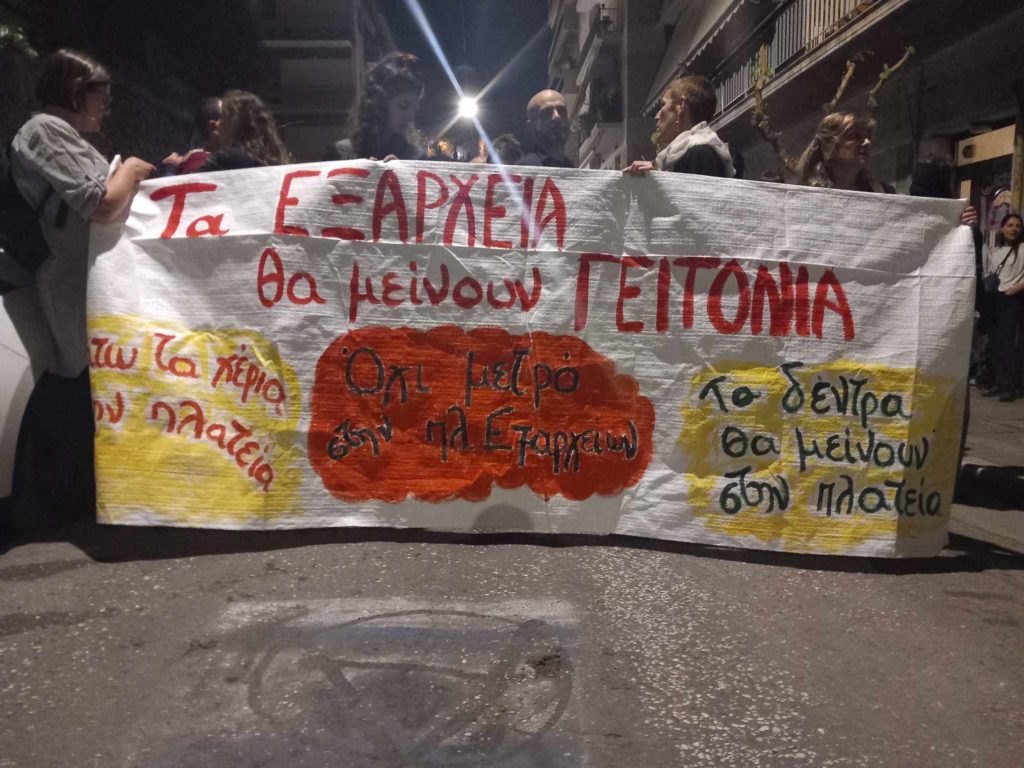 Τα ΕΞΑΡΧΕΙΑ
θα μείνουν ΓΕΙΤΟΝΙΑ
τα χέρια
πλατεία
Όχι μετρό
στην πλ. Εξαρχείων
Τα δέντρα
θα μείνουν
στην πλατεία